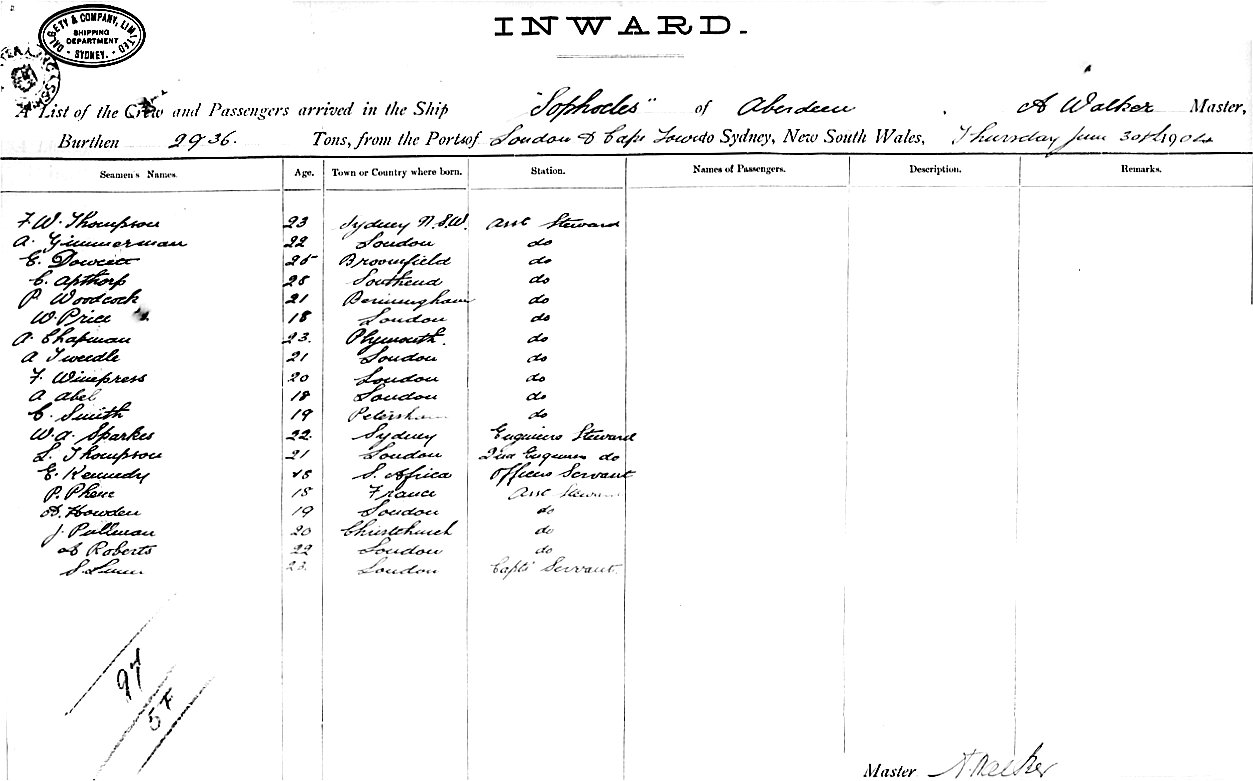 DALGETY & COMPANY, LIMITED
SHIPPING
DEPARTMENT
SYDNEY.
INWARD.
A List of the Crew and Passengers arrived in the Ship "Sophocles" of Aberdeen . A Walker Master,
Burthen 2936. Tons, from the Ports of London & Cape Town to Sydney, New South Wales, Thursday June 30th 1904
Seamen's Names. Age. Town or Country where born. Station. Names of Passengers. Description. Remarks.
F. W. Thompson 23 Sydney N.S.W. Asst Steward
A. Zimmerman 22 London do
E. 25 Broomfield do
C. Apthorp 28 Southend do
P. Woodcock 21 Bermingham do
W. Price 18 London do
A. Chapman 23. Plymouth. do
A Tweedle 21 London do
F. Winepress 20 London do
A Abel 18 London do
C. Smith 19 Petersham do
W. A. Sparkes 22. Sydney Engineers Steward
L. Thompson 21 London 2nd Engineers do
E. Kennedy 18 S. Africa Officers Servant
P. 18 France Asst Steward
A. Howden 19 London do
J. Pullman 20 Christchurch do
Roberts 22 London do
S. 23. London Capts Servant.
97
57
Master A. Walker